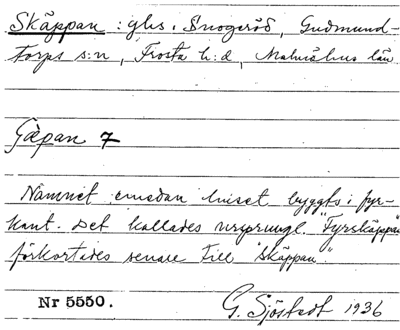 Skäppan : ghs i Snogeröd, Gudmund-
torps s:n, Frosta h:d, Malmöhus län
Gæpan 7
Namnet emedan huset byggts i fyr-
kant. Det kallades urspringl. "Fyrskäppan"
förkortades senare till "Skäppan".
Nr 5550.
G. Sjöstedt 1936